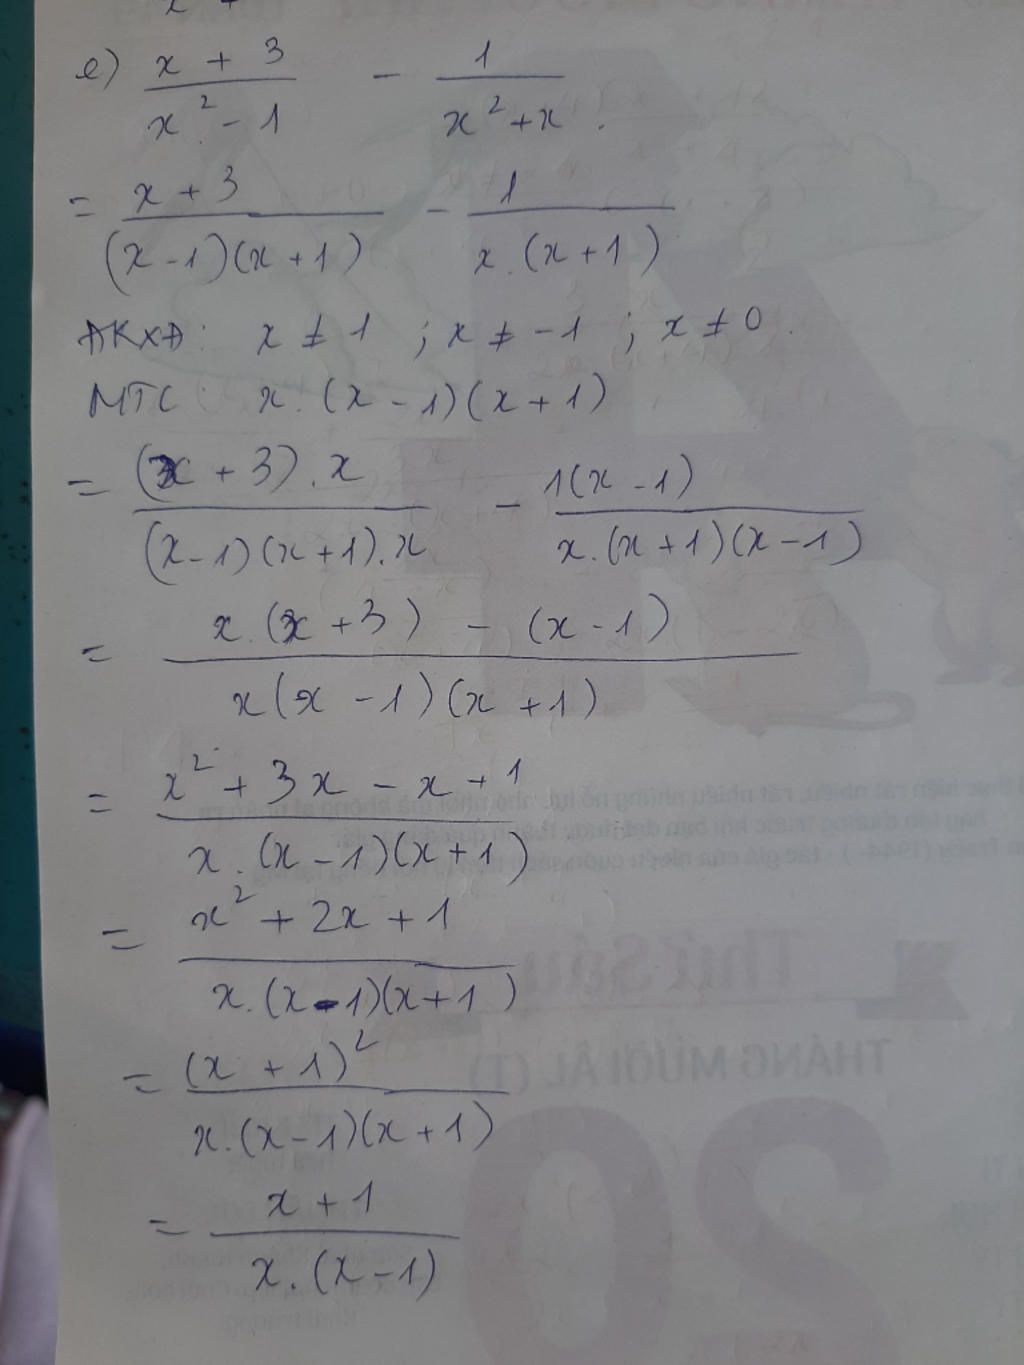 e) \frac{x + 3}{x^2 - 1} - \frac{1}{x^2 + x}.
= \frac{x + 3}{(x - 1)(x + 1)} - \frac{1}{x.(x + 1)}
ĐKXĐ: x ≠ 1 ; x ≠ -1 ; x ≠ 0.
MTC: x.(x - 1)(x + 1)
= \frac{(x + 3).x}{(x - 1)(x + 1).x} - \frac{1(x - 1)}{x.(x + 1)(x - 1)}
= \frac{x.(x + 3) - (x - 1)}{x(x - 1)(x + 1)}
= \frac{x^2 + 3x - x + 1}{x.(x - 1)(x + 1)}
= \frac{x^2 + 2x + 1}{x.(x - 1)(x + 1)}
= \frac{(x + 1)^2}{x.(x - 1)(x + 1)}
= \frac{x + 1}{x.(x - 1)}
Thứ Sáu
THÁNG MƯỜI ÂL (T)
20